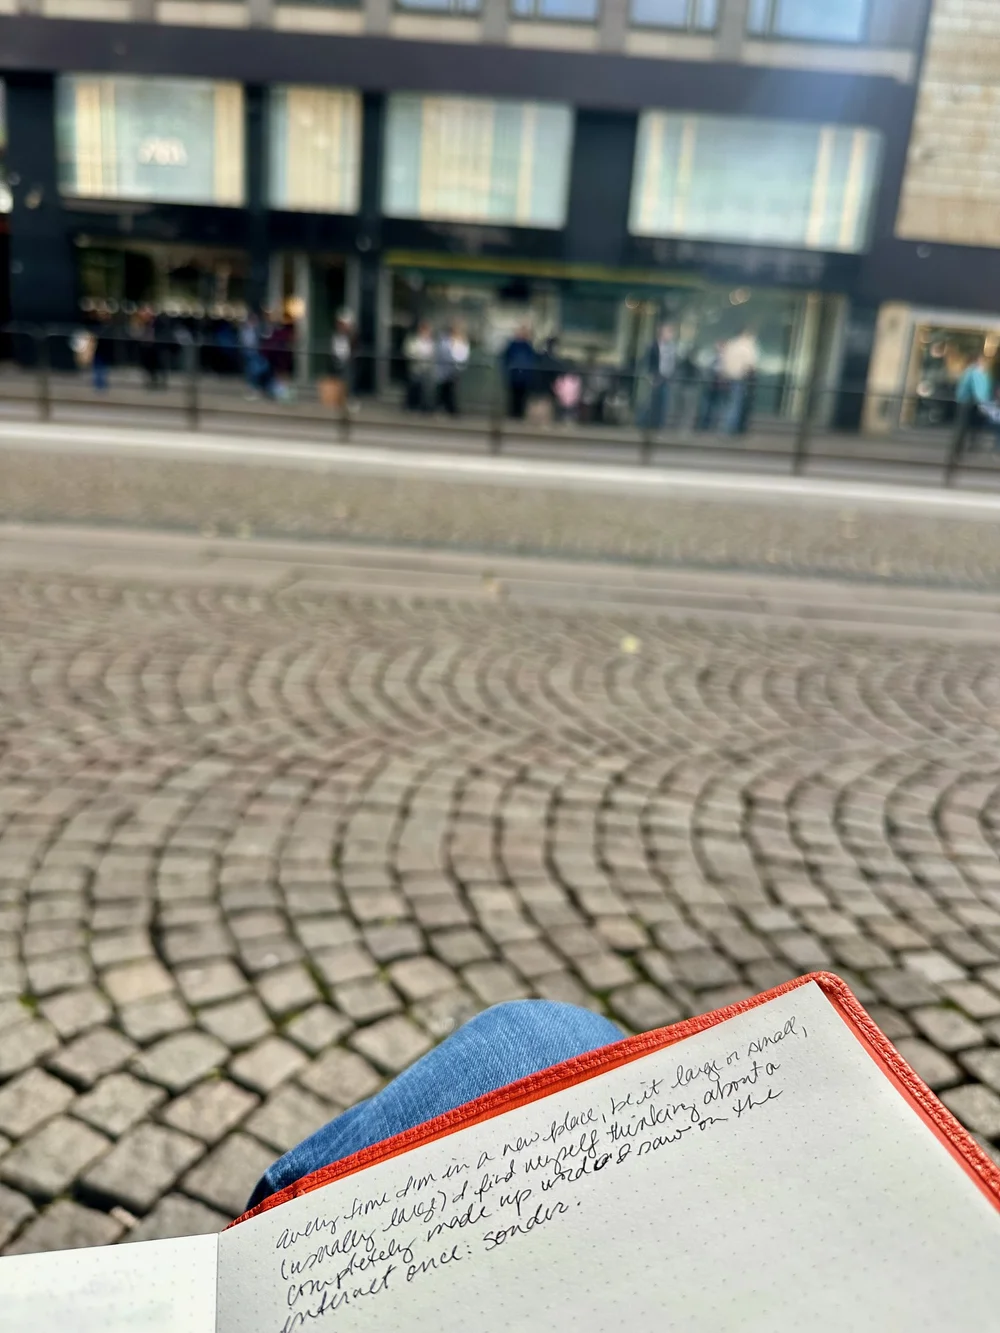 every time I'm in a new place, be it large or small,
(usually large) I find myself thinking about a
completely made up word I saw on the
internet once: sonder.